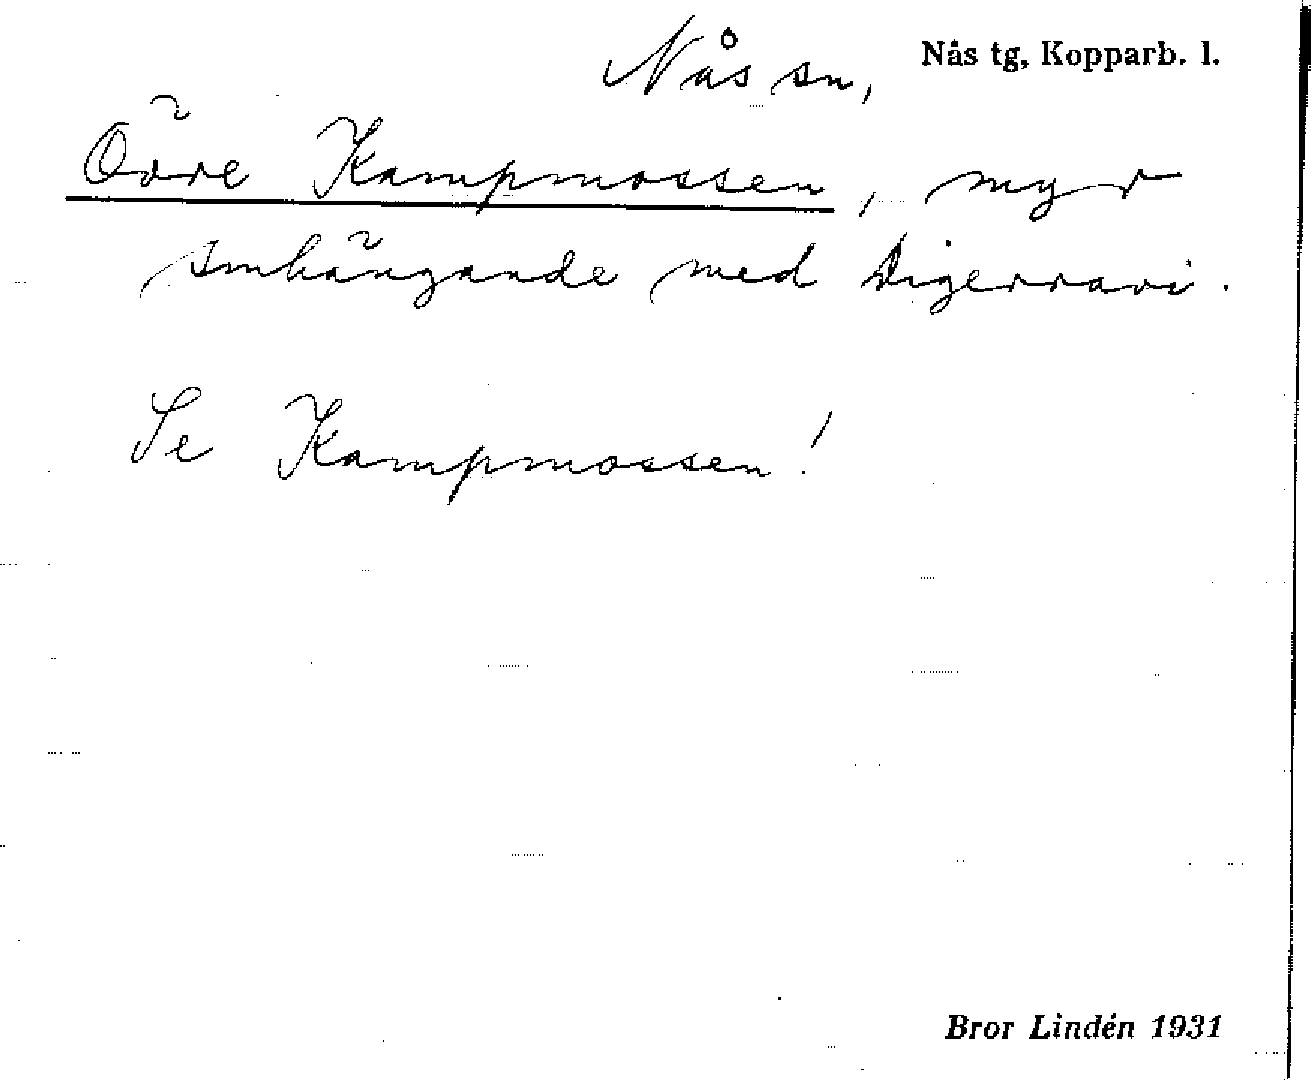 Nås sn, Nås tg, Kopparb. l.
Övre Kampmossen, myr
smhängande med Digerravi.
Se Kampmossen!
Bror Lindén 1931